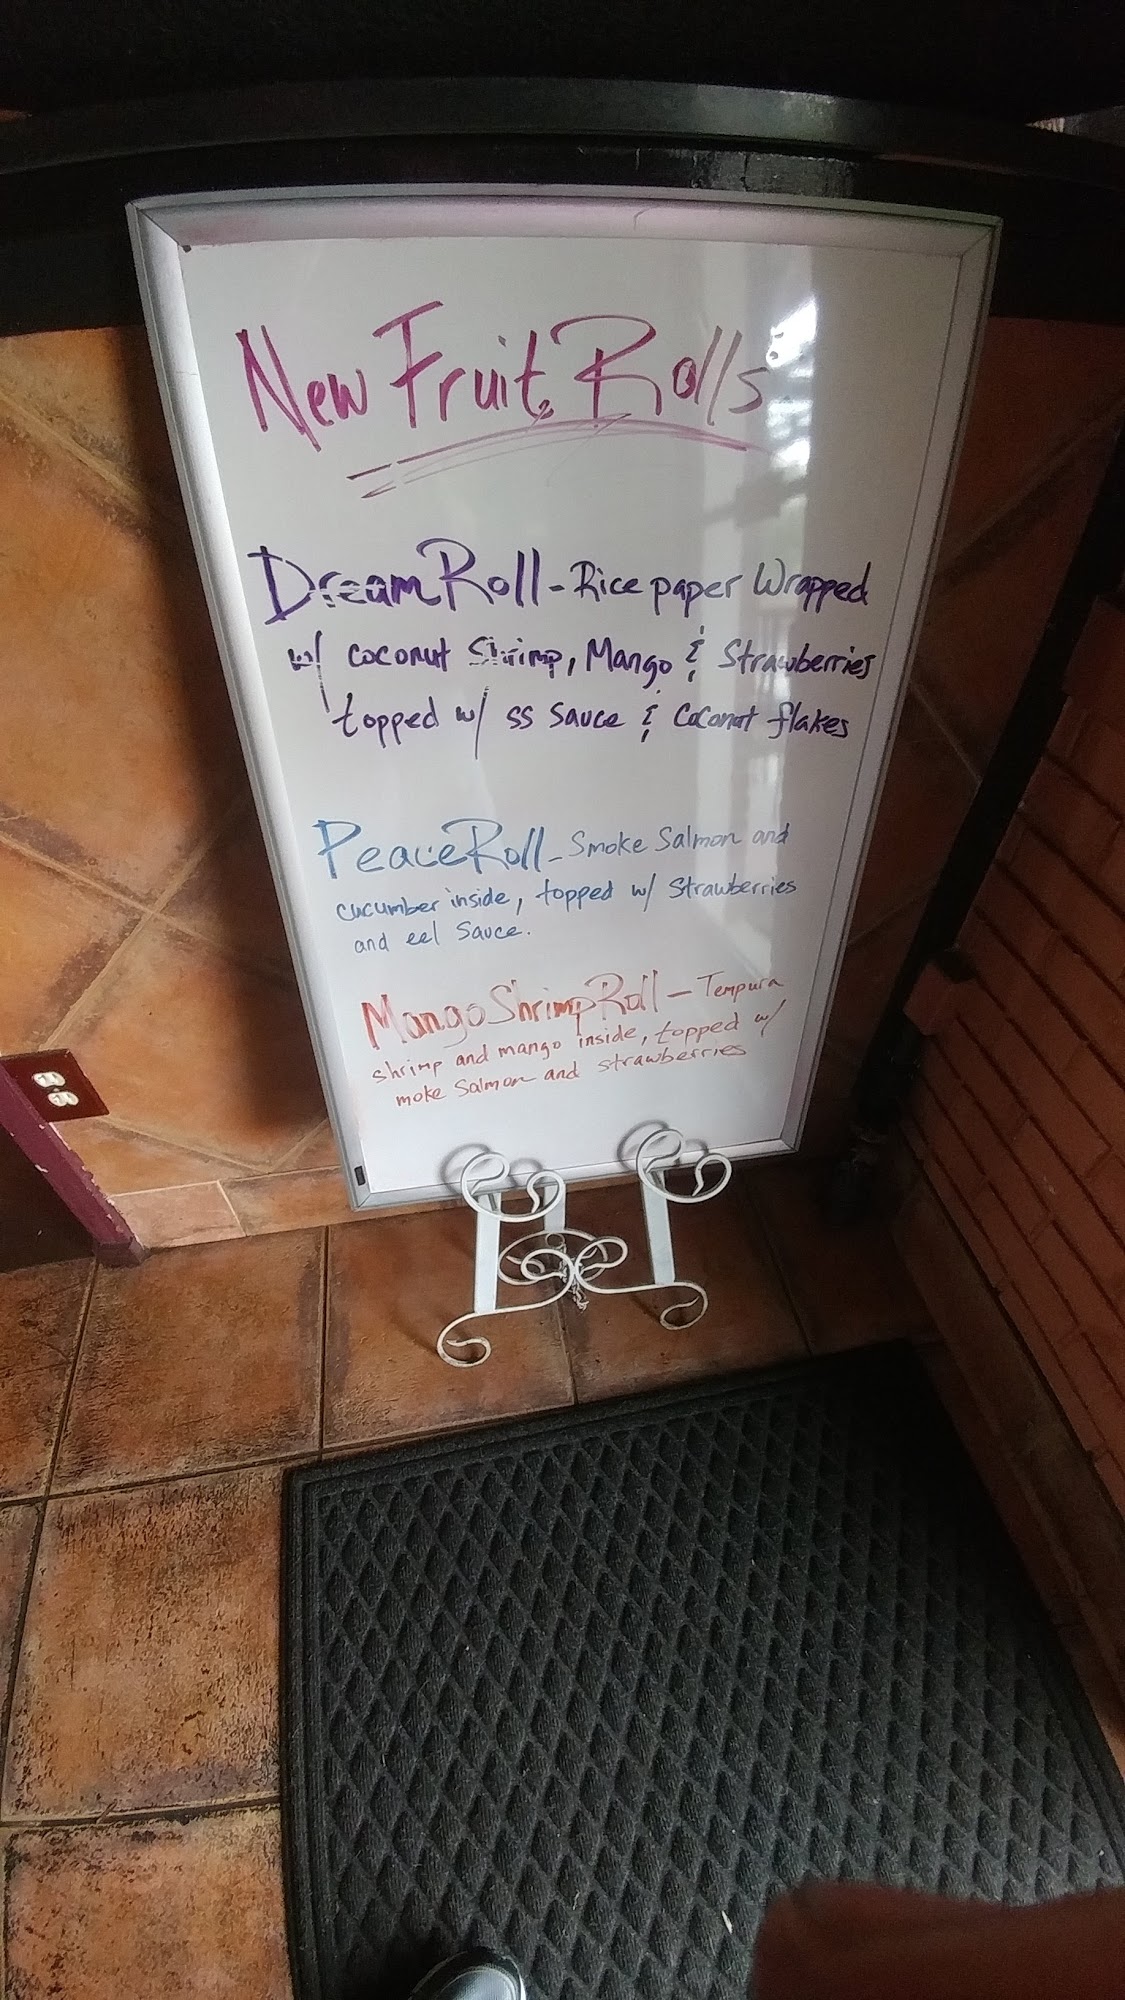 New Fruit Rolls
Dream Roll - Rice paper Wrapped
w/ coconut Shrimp, Mango & Strawberries
topped w/ SS Sauce & Coconut flakes
Peace Roll - Smoke Salmon and
cucumber inside, topped w/ Strawberries
and eel Sauce.
Mango Shrimp Roll - Tempura
shrimp and mango inside, topped w/
moke Salmon and strawberries